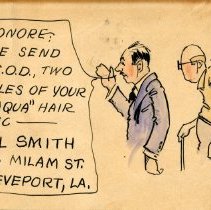 ONORE?
E SEND
.O.D., TWO
LES OF YOUR
AQUA" HAIR
IC —
L SMITH
MILAM ST.
EVEPORT, LA.